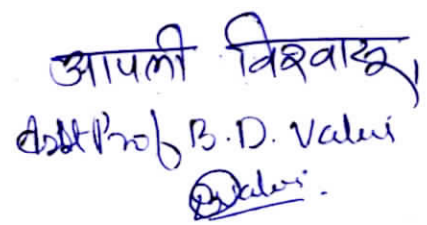 आपली विश्वासू,
Asst Prof B. D. Valvi
BValvi.